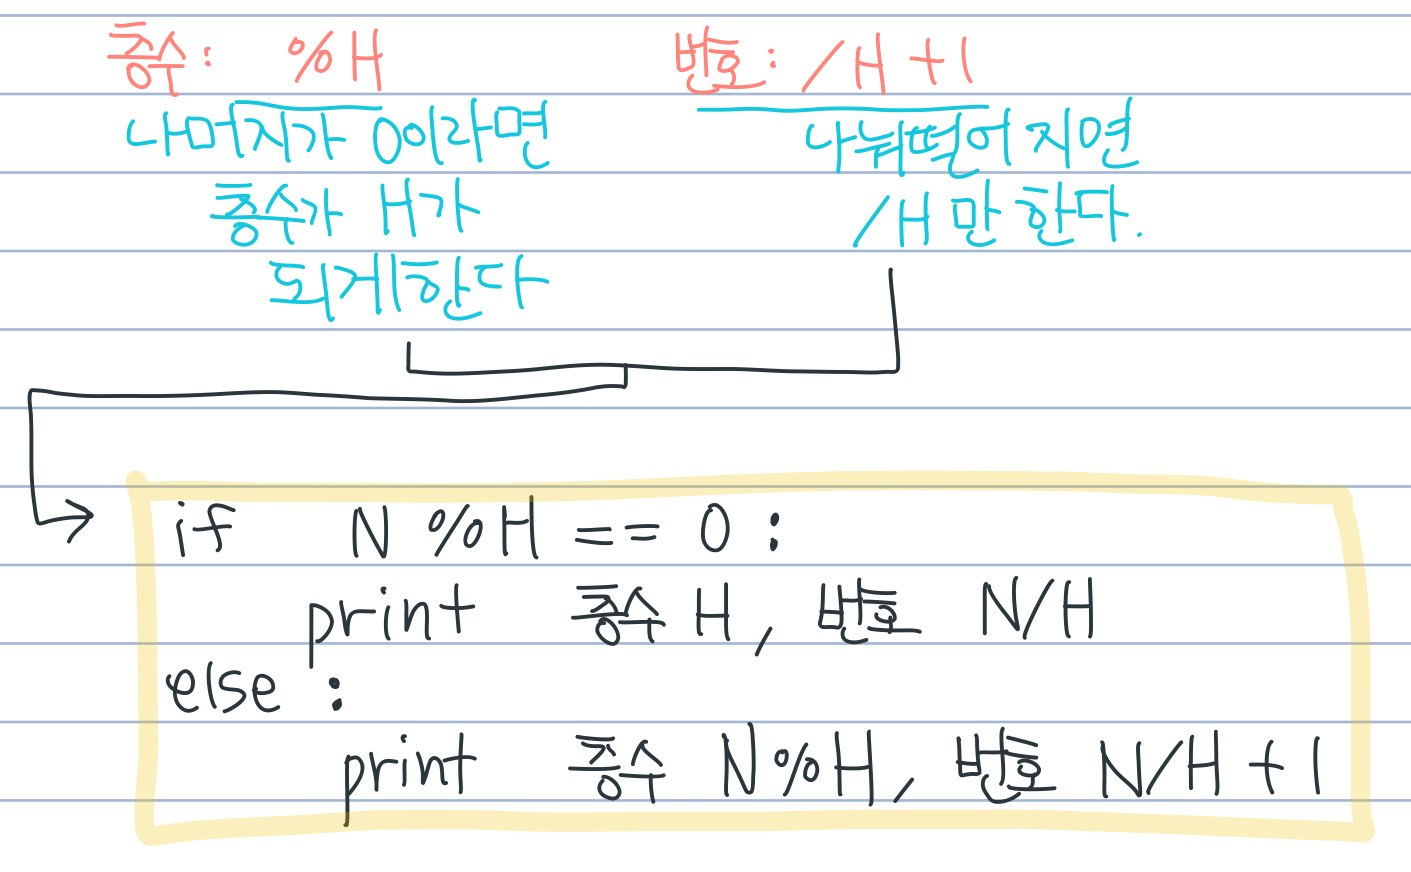 층수: %H
나머지가 0이라면
층수가 H가
되게한다
번호: /H +1
나눠떨어지면
/H만 한다.
if N %H == 0 :
print 층수 H, 번호 N/H
else :
print 층수 N%H, 번호 N/H + 1